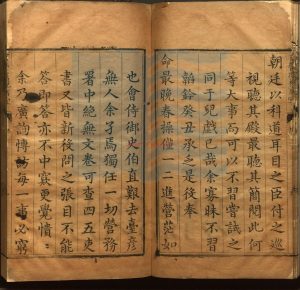 朝廷以科道耳目之臣付之巡
視聽其殿最聽其簡閱此何
等大事尚可以不習嘗試之
同于兒戲已哉余寡昧不習
韜鈐癸丑承之是役奉
命最晚春操僅一二進營茫如
也會侍御史伯直艱去臺彥
無人余孑焉獨任一切營務
署中絕無文卷可查四五吏
書又皆新役問之張目不能
答即答亦不中窾更覺憒憒
余乃廣詢博訪每一事必窮